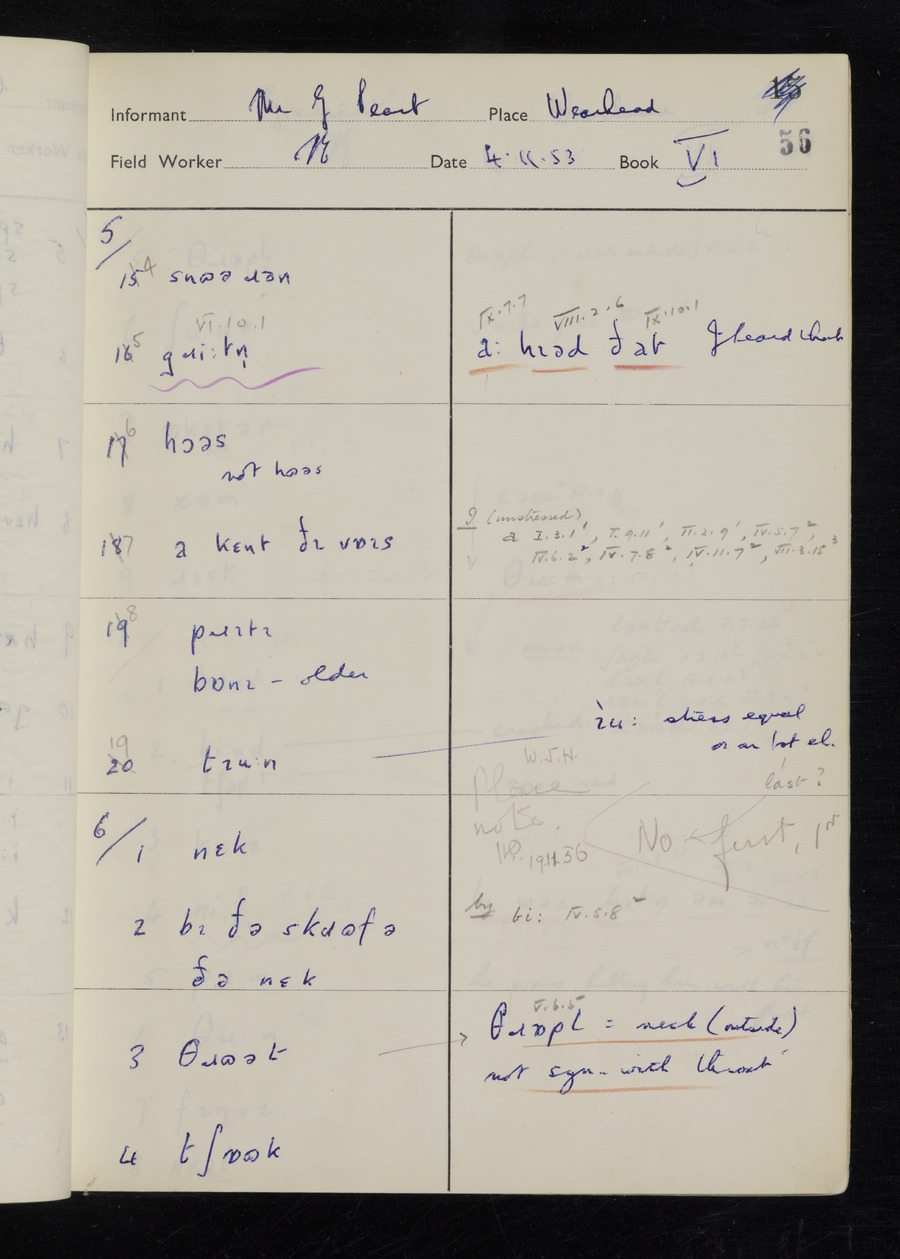 Informant Mr G Peart Place Wearhead
Field Worker Date 4.11.53 Book VI 56
5/
15 4 snɷəɹən
VI.10.1
16 5 gɹiːtn̩
IX.7.7 VIII.2.6 IX.10.1
aː hɪəd ðat I heard that
17 6 hɔəs
not hɒəs
18 7 a kɛnt ðɪ vɒɪs
I (unstressed)
a I.3.1¹, I.9.11¹, II.2.9¹, IV.5.7²,
IV.6.2², IV.7.8², IV.11.7², VII.3.15³
19 8 pɹɪtɪ
bɒnɪ – older
19 20 tɪuːn
ɪ̀uː stress equal
or on 1st el.
last?
W.J.H.
Please
note.
19.11.56
No first, 1st
6/
1 nɛk
2 bɪ ðə skɹɷf ə
ðə nɛk
by biː IV.5.8²
3 θɹɷət
V.6.5
θɹɒpl = neck (outside)
not syn. with throat
4 tʃɒək